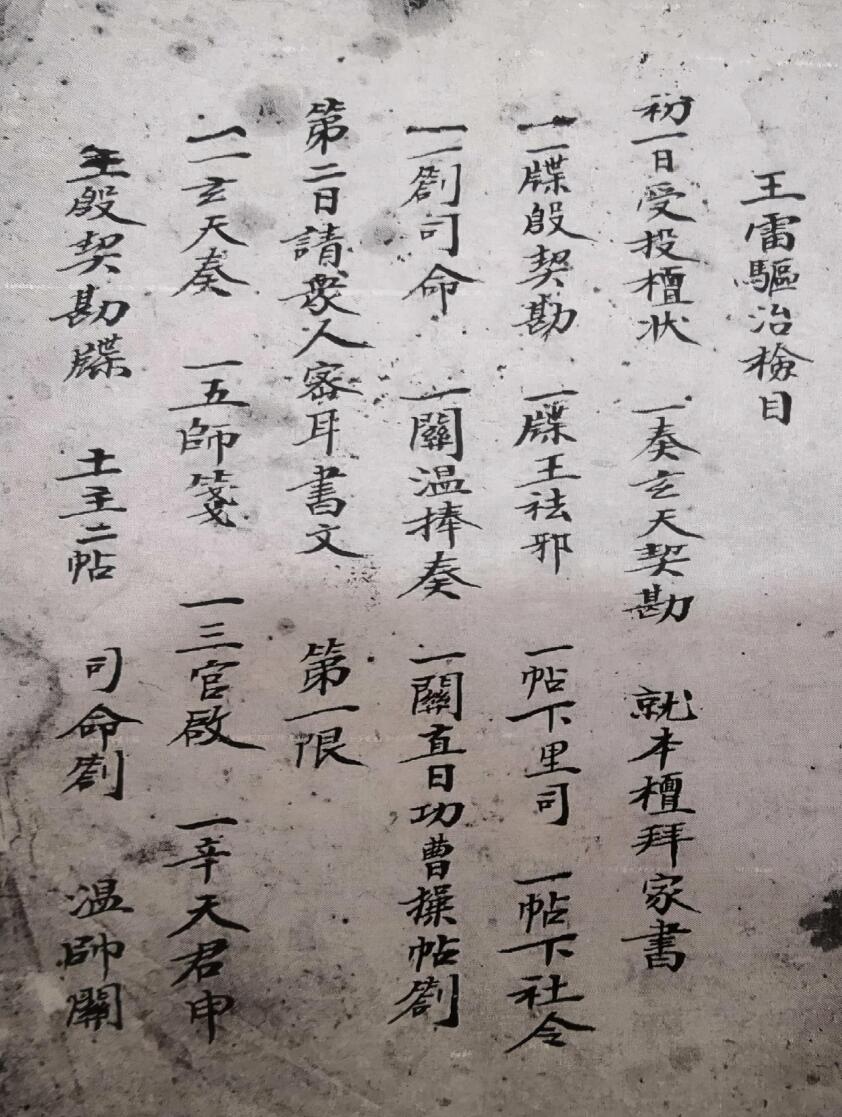 王雷驅治檢目
初一日受投檀状 一奏玄天契勘 就本檀拜家書
一牒殷契勘 一牒王祛邪 一帖下里司 一帖下社令
一劄司命 一關温捧奏 一關直日功曹撰帖劄
第二日請衆人密耳書文 第一限
一玄天奏 一五師箋 一三官啟 一辛天君申
王殷契勘牒 土主二帖 司命劄 温帥關